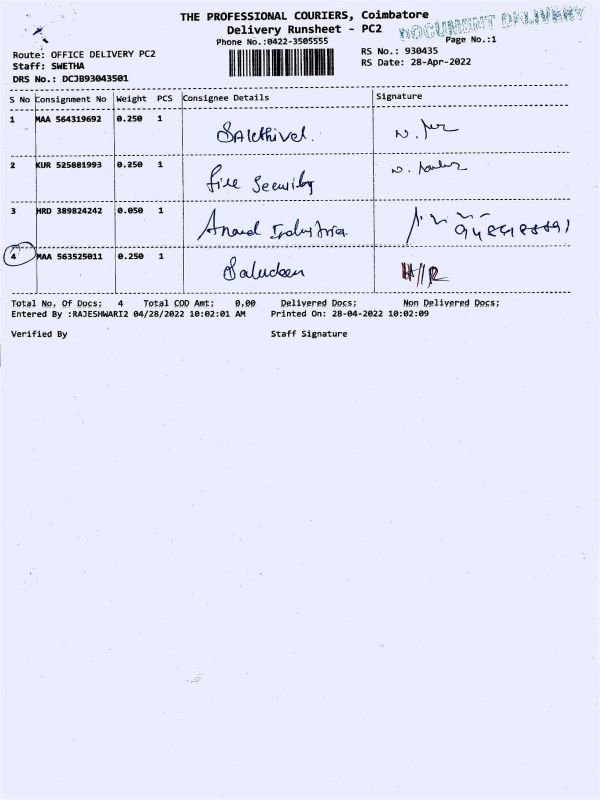 THE PROFESSIONAL COURIERS, Coimbatore
Delivery Runsheet - PC2
DOCUMENT DELIVERY
Phone No.:0422-3505555
Page No.:1
Route: OFFICE DELIVERY PC2
RS No.: 930435
Staff: SWETHA
RS Date: 28-Apr-2022
DRS No.: DCJB93043501
S No Consignment No Weight PCS Consignee Details Signature
1 MAA 564319692 0.250 1 Sakthivel.
2 KUR 525881993 0.250 1 Fire Security
3 HRD 389824242 0.050 1 Anand
4 MAA 563525011 0.250 1
Total No. Of Docs: 4 Total COD Amt: 0.00 Delivered Docs: Non Delivered Docs:
Entered By :RAJESHWARI2 04/28/2022 10:02:01 AM Printed On: 28-04-2022 10:02:09
Verified By Staff Signature